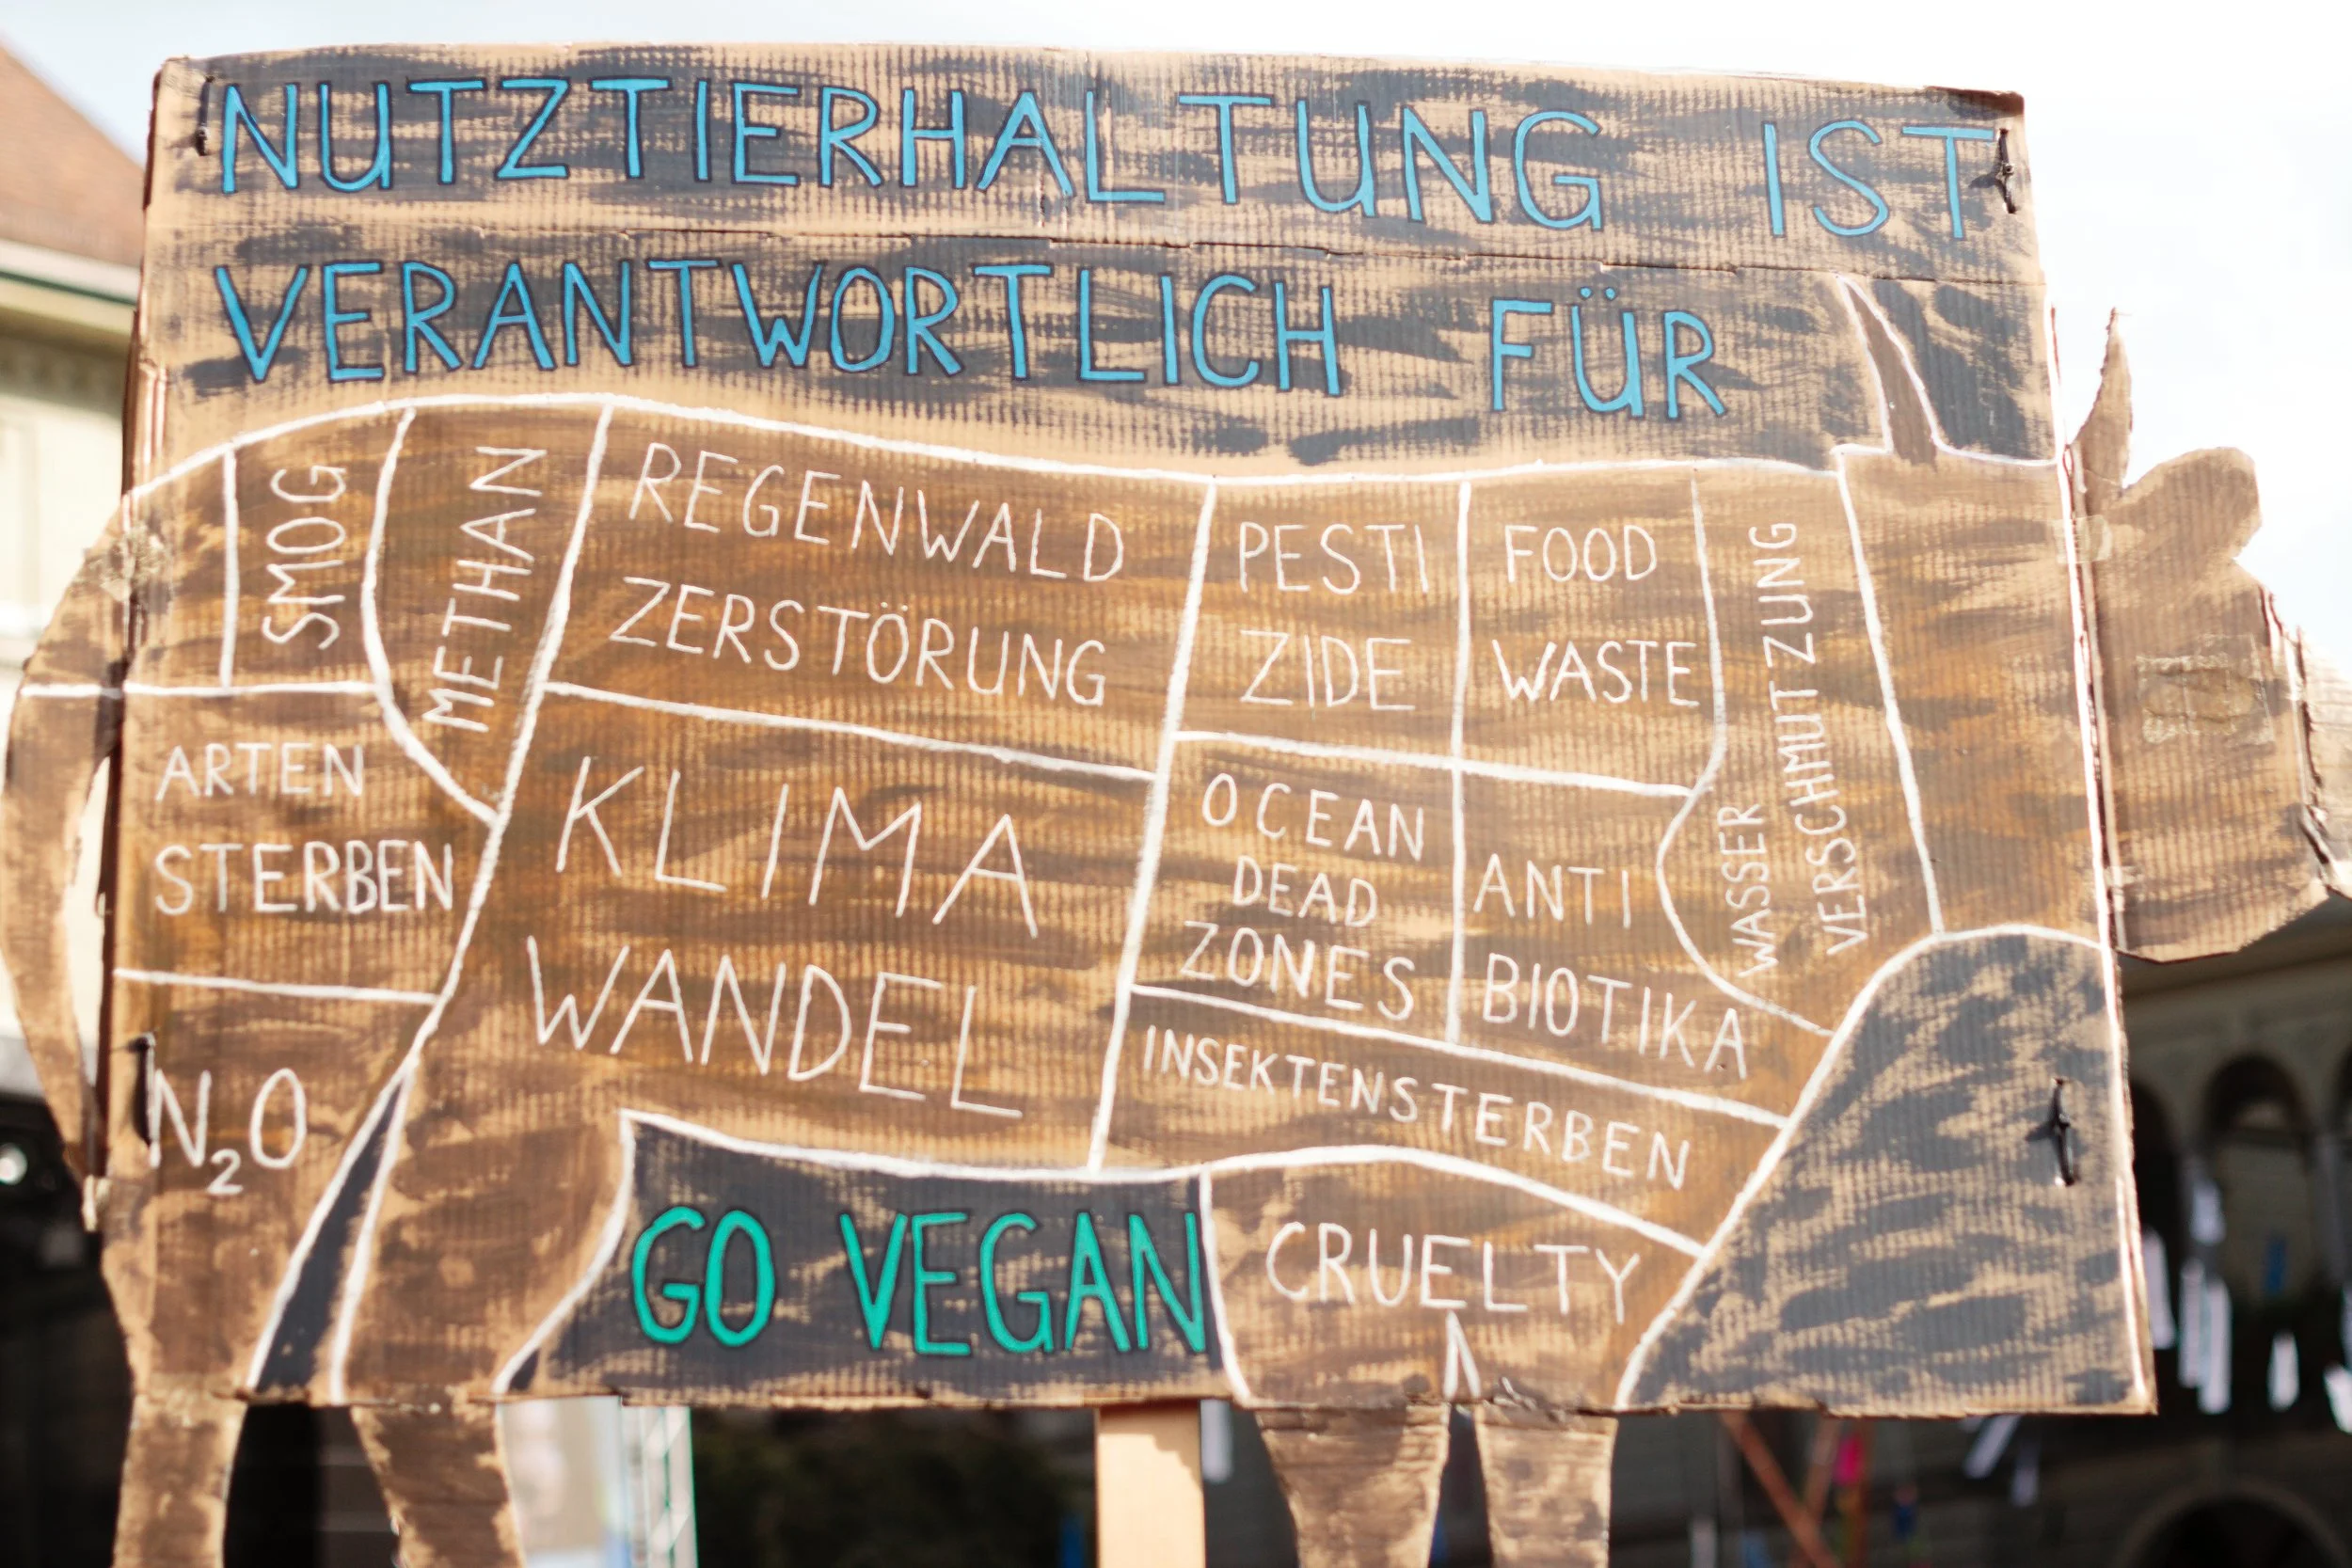 NUTZTIERHALTUNG IST
VERANTWORTLICH FÜR
SMOG
METHAN
REGENWALD
ZERSTÖRUNG
PESTI
ZIDE
FOOD
WASTE
WASSER
VERSCHMUTZUNG
ARTEN
STERBEN
KLIMA
WANDEL
OCEAN
DEAD
ZONES
ANTI
BIOTIKA
N₂O
INSEKTENSTERBEN
GO VEGAN
CRUELTY